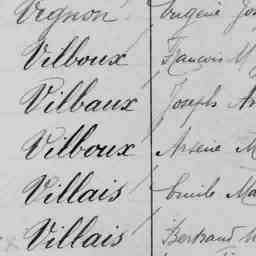 Vignon Eugène Jos
Vilboux François M
Vilbaux Joseph Ar
Vilboux Arsène M
Villais Emile Ma
Villais Bertrand M